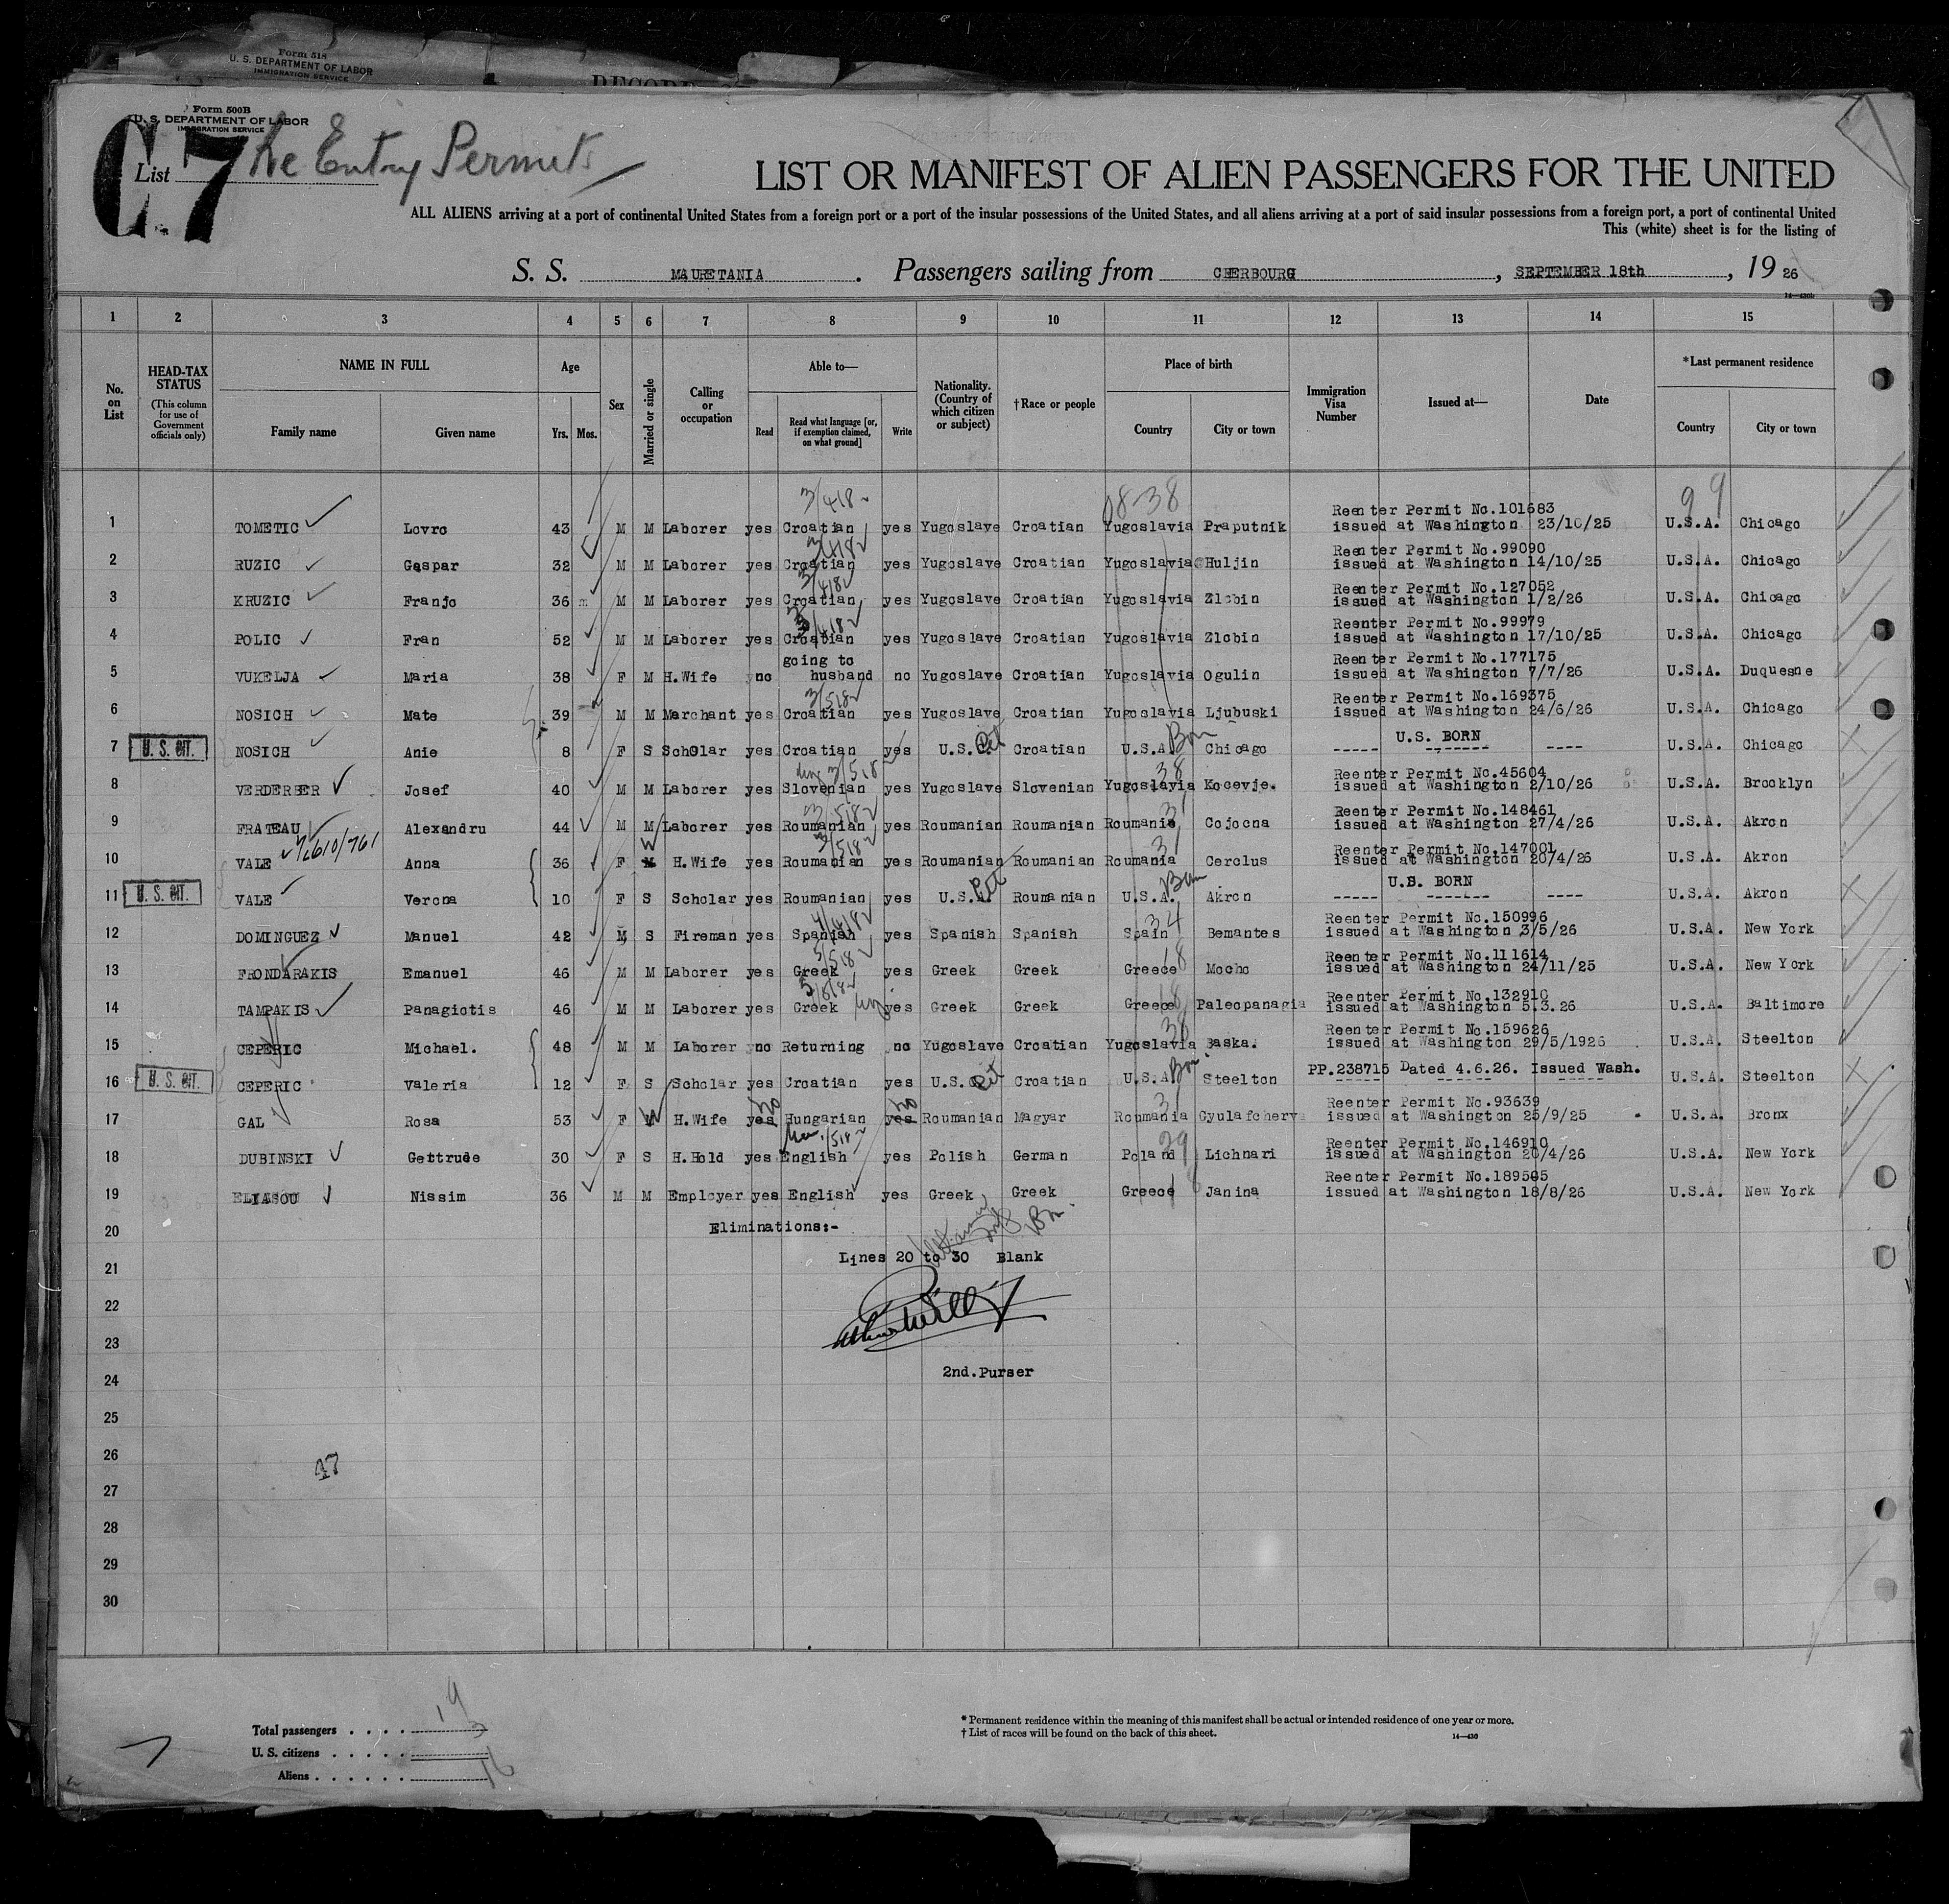 Form 518
U. S. DEPARTMENT OF LABOR
IMMIGRATION SERVICE
RECORD
Form 500B
U. S. DEPARTMENT OF LABOR
IMMIGRATION SERVICE
C.7
List
Re Entry Permits
LIST OR MANIFEST OF ALIEN PASSENGERS FOR THE UNITED
ALL ALIENS arriving at a port of continental United States from a foreign port or a port of the insular possessions of the United States, and all aliens arriving at a port of said insular possessions from a foreign port, a port of continental United
This (white) sheet is for the listing of
S. S. MAURETANIA. Passengers sailing from CHERBOURG, SEPTEMBER 18th, 19 26
14—430b
1 2 3 4 5 6 7 8 9 10 11 12 13 14 15
No. on List
HEAD-TAX STATUS
(This column for use of Government officials only)
NAME IN FULL
Family name Given name
Age
Yrs. Mos.
Sex
Married or single
Calling or occupation
Able to—
Read
Read what language [or, if exemption claimed, on what ground]
Write
Nationality. (Country of which citizen or subject)
†Race or people
Place of birth
Country City or town
Immigration Visa Number
Issued at—
Date
*Last permanent residence
Country City or town
3/418 0838 99
Reenter Permit No.101683
1 TOMETIC Lovro 43 M M Laborer yes Croatian yes Yugoslave Croatian Yugoslavia Praputnik issued at Washington 23/10/25 U.S.A. Chicago
3/418
Reenter Permit No.99090
2 RUZIC Gaspar 32 M M Laborer yes Croatian yes Yugoslave Croatian Yugoslavia Huljin issued at Washington 14/10/25 U.S.A. Chicago
3/418
Reenter Permit No.127052
3 KRUZIC Franjo 36 m M M Laborer yes Croatian yes Yugoslave Croatian Yugoslavia Zlobin issued at Washington 1/2/26 U.S.A. Chicago
3/418
Reenter Permit No.99979
4 POLIC Fran 52 M M Laborer yes Croatian yes Yugoslave Croatian Yugoslavia Zlobin issued at Washington 17/10/25 U.S.A. Chicago
going to Reenter Permit No.177175
5 VUKELJA Maria 38 F M H.Wife no husband no Yugoslave Croatian Yugoslavia Ogulin issued at Washington 7/7/26 U.S.A. Duquesne
3/518
Reenter Permit No.169375
6 NOSICH Mate 39 M M Merchant yes Croatian yes Yugoslave Croatian Yugoslavia Ljubuski issued at Washington 24/6/26 U.S.A. Chicago
U.S. BORN
7 U. S. CIT. NOSICH Anie 8 F S Scholar yes Croatian yes U.S. Cit Croatian U.S.A. Born Chicago ----- ------- ---- U.S.A. Chicago
3/518 38
Reenter Permit No.45604
8 VERDERBER Josef 40 M M Laborer yes Slovenian yes Yugoslave Slovenian Yugoslavia Kocevje. issued at Washington 2/10/26 U.S.A. Brooklyn
3/518 31
Reenter Permit No.148461
9 FRATEAU Alexandru 44 M M Laborer yes Roumanian yes Roumanian Roumanian Roumania Cojocna issued at Washington 27/4/26 U.S.A. Akron
W 3/518 31
Reenter Permit No.147001
10 VALE Anna 36 F M H.Wife yes Roumanian yes Roumanian Roumanian Roumania Cerclus issued at Washington 20/4/26 U.S.A. Akron
U.S. BORN
11 U. S. CIT. VALE Verona 10 F S Scholar yes Roumanian yes U.S.A. Cit Roumanian U.S.A. Born Akron ----- ------- ---- U.S.A. Akron
34
Reenter Permit No.150996
12 DOMINGUEZ Manuel 42 M S Fireman yes Spanish yes Spanish Spanish Spain Bemantes issued at Washington 3/5/26 U.S.A. New York
3/518 18
Reenter Permit No.111614
13 FRONDARAKIS Emanuel 46 M M Laborer yes Greek yes Greek Greek Greece Mocho issued at Washington 24/11/25 U.S.A. New York
18
Reenter Permit No.132910
14 TAMPAKIS Panagiotis 46 M M Laborer yes Greek yes Greek Greek Greece Paleopanagia issued at Washington 5.3.26 U.S.A. Baltimore
38
Reenter Permit No.159626
15 CEPERIC Michael. 48 M M Laborer no Returning no Yugoslave Croatian Yugoslavia Baska. issued at Washington 29/5/1926 U.S.A. Steelton
16 U. S. CIT. CEPERIC Valeria 12 F S Scholar yes Croatian yes U.S. Cit Croatian U.S.A. Born Steelton PP.238715 Dated 4.6.26. Issued Wash. U.S.A. Steelton
no no 31
Reenter Permit No.93639
17 GAL Rosa 53 F W H.Wife yes Hungarian yes Roumanian Magyar Roumania Gyulafcherv issued at Washington 25/9/25 U.S.A. Bronx
29
Reenter Permit No.146910
18 DUBINSKI Gertrude 30 F S H.Hold yes English yes Polish German Poland Lichnari issued at Washington 20/4/26 U.S.A. New York
18
Reenter Permit No.189505
19 ELIASOU Nissim 36 M M Employer yes English yes Greek Greek Greece Janina issued at Washington 18/8/26 U.S.A. New York
20 Eliminations:-
21 Lines 20 to 30 Blank
22
23
24 2nd.Purser
25
26
27
28
29
30
Total passengers 19
U. S. citizens 3
Aliens 16
* Permanent residence within the meaning of this manifest shall be actual or intended residence of one year or more.
† List of races will be found on the back of this sheet.
14—430